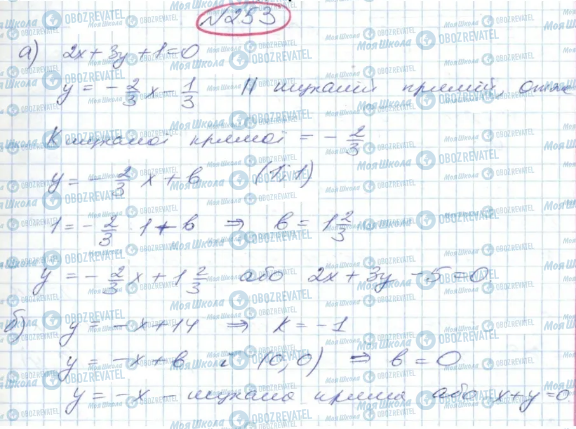 №253
а) 2x+3y+1=0
y = -2/3 x - 1/3 || шуканій прямій, отже
K шуканої прямої = -2/3
y = -2/3 x + b (1;1)
1 = -2/3 · 1 + b ⇒ b = 1 2/3
y = -2/3 x + 1 2/3 або 2x+3y-5=0
б) y = -x+14 ⇒ K = -1
y = -x+b і (0,0) ⇒ b = 0
y = -x - шукана пряма або x+y=0
Моя Школа
OBOZREVATEL